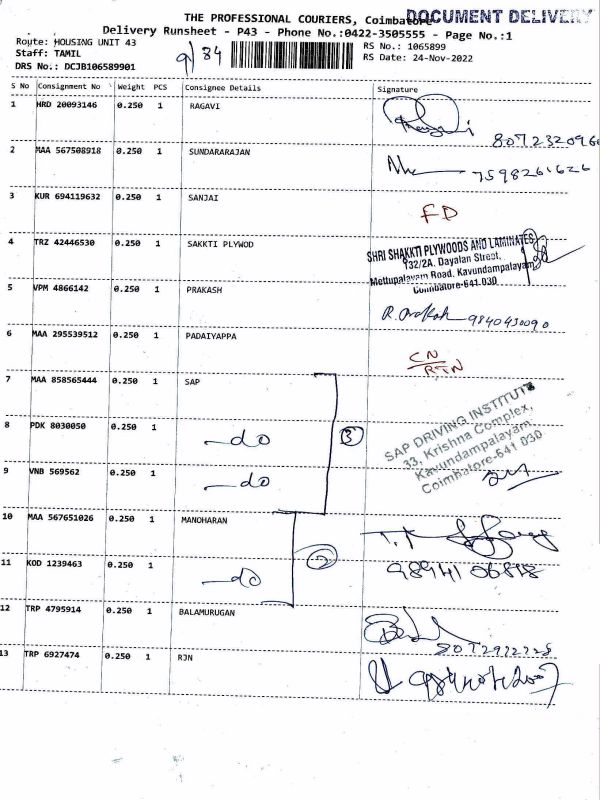 THE PROFESSIONAL COURIERS, Coimbatore
DOCUMENT DELIVERY
Delivery Runsheet - P43 - Phone No.:0422-3505555 - Page No.:1
Route: HOUSING UNIT 43
Staff: TAMIL
DRS No.: DCJB106589901
9/84
RS No.: 1065899
RS Date: 24-Nov-2022
S No Consignment No Weight PCS Consignee Details Signature
1 HRD 20093146 0.250 1 RAGAVI
8072320966
2 MAA 567508918 0.250 1 SUNDARARAJAN
7598261626
3 KUR 694119632 0.250 1 SANJAI FD
4 TRZ 42446530 0.250 1 SAKKTI PLYWOD
SHRI SHAKKTI PLYWOODS AND LAMINATES
132/2A, Dayalan Street,
Mettupalayam Road, Kavundampalayam
Coimbatore-641 030
5 VPM 4866142 0.250 1 PRAKASH
9840430090
6 MAA 295539512 0.250 1 PADAIYAPPA
CN
RTN
7 MAA 858565444 0.250 1 SAP
8 PDK 8030050 0.250 1 do 3
SAP DRIVING INSTITUTE
33, Krishna Complex,
Kavundampalayam
Coimbatore-641 030
9 VNB 569562 0.250 1 do
10 MAA 567651026 0.250 1 MANOHARAN
11 KOD 1239463 0.250 1 do 2
12 TRP 4795914 0.250 1 BALAMURUGAN
13 TRP 6927474 0.250 1 RJN